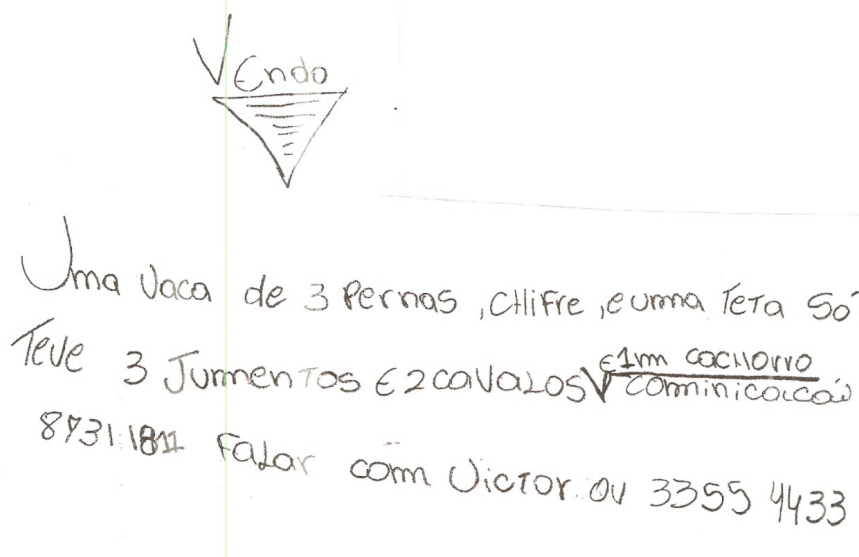 VEndo
Uma Vaca de 3 Pernas, CHifre, e uma Teta Só
Teve 3 Jumentos E 2 caVaLos E1m cacHorro
cominicacaõ
8731:1811 FaLar com Victor. ou 3355 4433